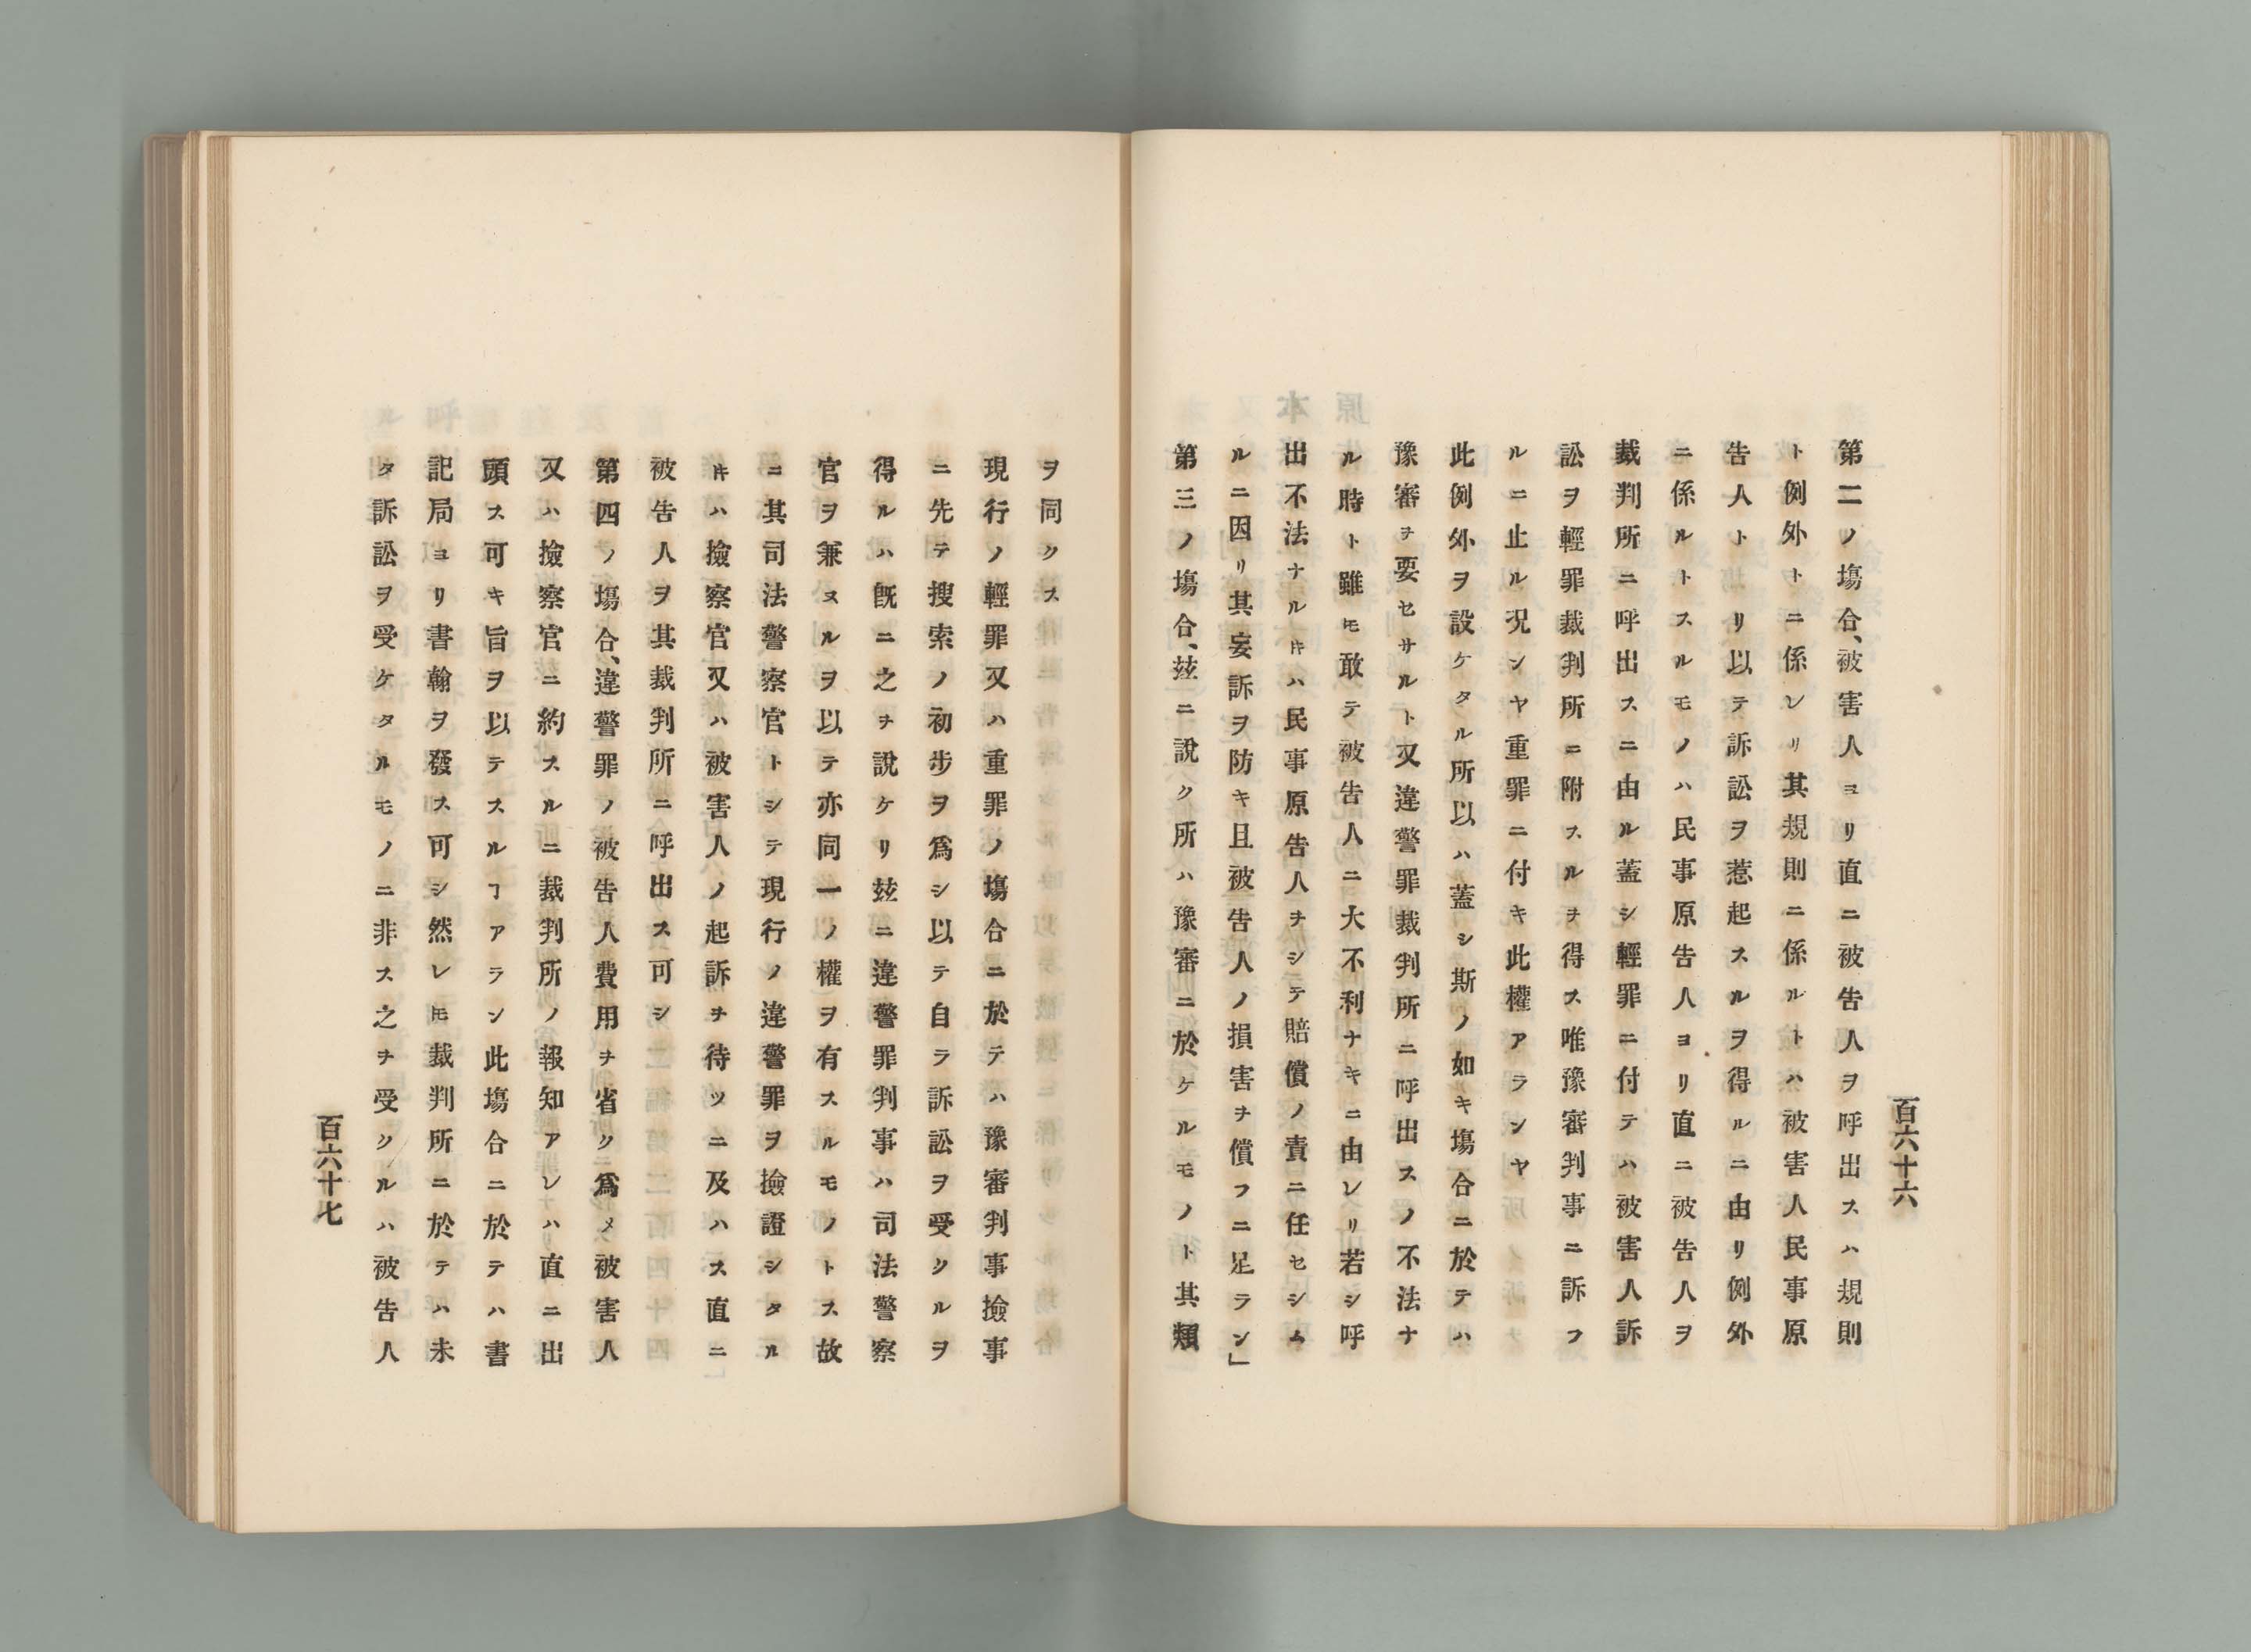 百六十六
第二ノ塲合、被害人ヨリ直ニ被告人ヲ呼出スハ規則
ト例外トニ係レリ其規則ニ係ルトハ被害人民事原
告人トリ以テ訴訟ヲ惹起スルヲ得ルニ由リ例外
ニ係ルトスルモノハ民事原告人ヨリ直ニ被告人ヲ
裁判所ニ呼出スニ由ル蓋シ輕罪ニ付テハ被害人訴
訟ヲ輕罪裁判所ニ附スルヲ得ス唯豫審判事ニ訴フ
ルニ止ル况ンヤ重罪ニ付キ此權アランヤ
此例外ヲ設ケタル所以ハ蓋シ斯ノ如キ塲合ニ於テハ
豫審ヲ要セサルト又違警罪裁判所ニ呼出スノ不法ナ
ル時ト雖𪜈敢テ被告人ニ大不利ナキニ由レリ若シ呼
出不法ナルキハ民事原告人ヲシテ賠償ノ責ニ任セシム
ルニ因リ其妄訴ヲ防キ且被告人ノ損害ヲ償フニ足ラン」
第三ノ塲合、玆ニ說ク所ハ豫審ニ於ケルモノト其類
ヲ同クス
現行ノ輕罪又ハ重罪ノ塲合ニ於テハ豫審判事撿事
ニ先テ搜索ノ初步ヲ爲シ以テ自ラ訴訟ヲ受クルヲ
得ルハ旣ニ之ヲ說ケリ玆ニ違警罪判事ハ司法警察
官ヲ兼ヌルヲ以テ亦同一ノ權ヲ有スルモノトス故
ニ其司法警察官トシテ現行ノ違警罪ヲ撿證シタル
𪜈ハ撿察官又ハ被害人ノ起訴ヲ待ツニ及ハス直ニ
被告人ヲ其裁判所ニ呼出ス可シ
第四ノ塲合、違警罪ノ被告人費用ヲ省ク爲メ被害人
又ハ撿察官ニ約スルニ裁判所ノ報知アレハ直ニ出
頭ス可キ旨ヲ以テスルヿアラン此塲合ニ於テハ書
記局ヨリ書翰ヲ發ス可シ然レ𪜈裁判所ニ於テハ未
タ訴訟ヲ受ケタルモノニ非ス之ヲ受クルハ被告人
百六十七